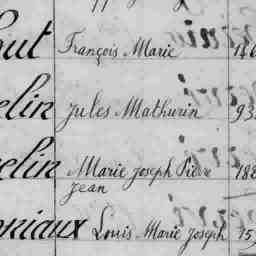 François Marie
elin Jules Mathurin 93
elin Marie Joseph Pierre 188
Jean
oniaux Louis Marie Joseph 15